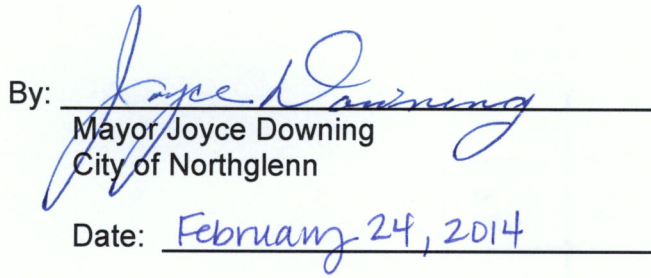 By: Joyce Downing
Mayor Joyce Downing
City of Northglenn
Date: February 24, 2014